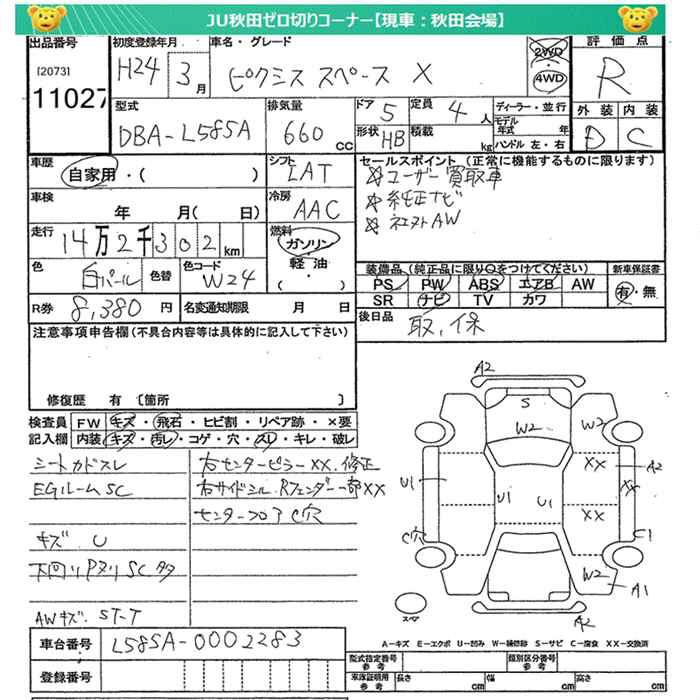 JU秋田ゼロ切りコーナー【現車：秋田会場】
出品番号 初度登録年月 車名・グレード 評価点
[2073] H24年 3月 ピクシス スペース X 2WD 4WD R
11027
型式 排気量 ドア 5 定員 4人 ディーラー・並行 外装 内装
DBA-L585A 660cc 形状 HB 積載 kg モデル年式 年 D C
ハンドル 左・右
車歴 シフト セールスポイント（正常に機能するものに限ります）
自家用・( ) LAT ユーザー買取車
車検 冷房 純正ナビ
年 月( 日) AAC 社外AW
走行 燃料
14万2千302km ガソリン
軽油
色 色替 色コード 装備品（純正品に限り○をつけてください） 新車保証書
白パール W24 PS PW ABS エアB AW 有・無
R券 8,380円 名変通知期限 月 日 SR ナビ TV カワ
後日品 取，保
注意事項申告欄（不具合内容等は具体的に記入して下さい）
修復歴 有〔箇所 〕
検査員 FW キズ・飛石・ヒビ割・リペア跡・×要
記入欄 内装 キズ・汚レ・コゲ・穴・スレ・キレ・破レ
シートカドスレ 右センターピラーXX.修正
EGルームSC 右サイドシル.Rフェンダー一部XX
センターフロアC穴
キズ. U
下回りPヌリSC多
AWキズ. ST-T
A2
S
W2 W2
XX A2
U1 XX
U1 U1
XX
C穴 C1
W2
A1
スペア A2
A－キズ E－エクボ U－凹み W－補修跡 S－サビ C－腐食 XX－交換済
車台番号 L585A-0002283
登録番号
型式指定番号 参考 類別区分番号 参考
車庫証明用 参考 長さ cm 幅 cm 高さ cm